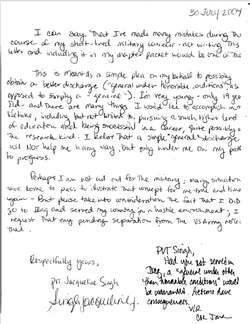 30 JULY 2004
I can say that I've made many mistakes during the
course of my short-lived military career - not writing this
letter and including it in my chapter packet would be one of them.
This is towards a simple plea on my behalf to possibly
obtain a better discharge ("general under honorable conditions" as
opposed to simply a "general"). I'm very young - only 19 years
old - and there are many things I would like to accomplish in my
lifetime, including, but not limited to, pursuing a much higher level
of education and being successful in a career, quite possibly
the research kind. I believe that a simple "general" discharge
will not help me in any way, but only hinder me on my path
to progress.
Perhaps I am not cut out for the military; many situations
have come to pass to illustrate that concept for me time and time
again - But please take into consideration the fact that I did
go to Iraq and served my country in a hostile environment, I
request that my pending separation from the US Army notes
that.
Respectfully yours,
Pvt. Jacqueline Singh
PVT Singh,
Had you not served in
Iraq, a "general under other
than honorable conditions" would
be warranted. Actions have
consequences.
V/R